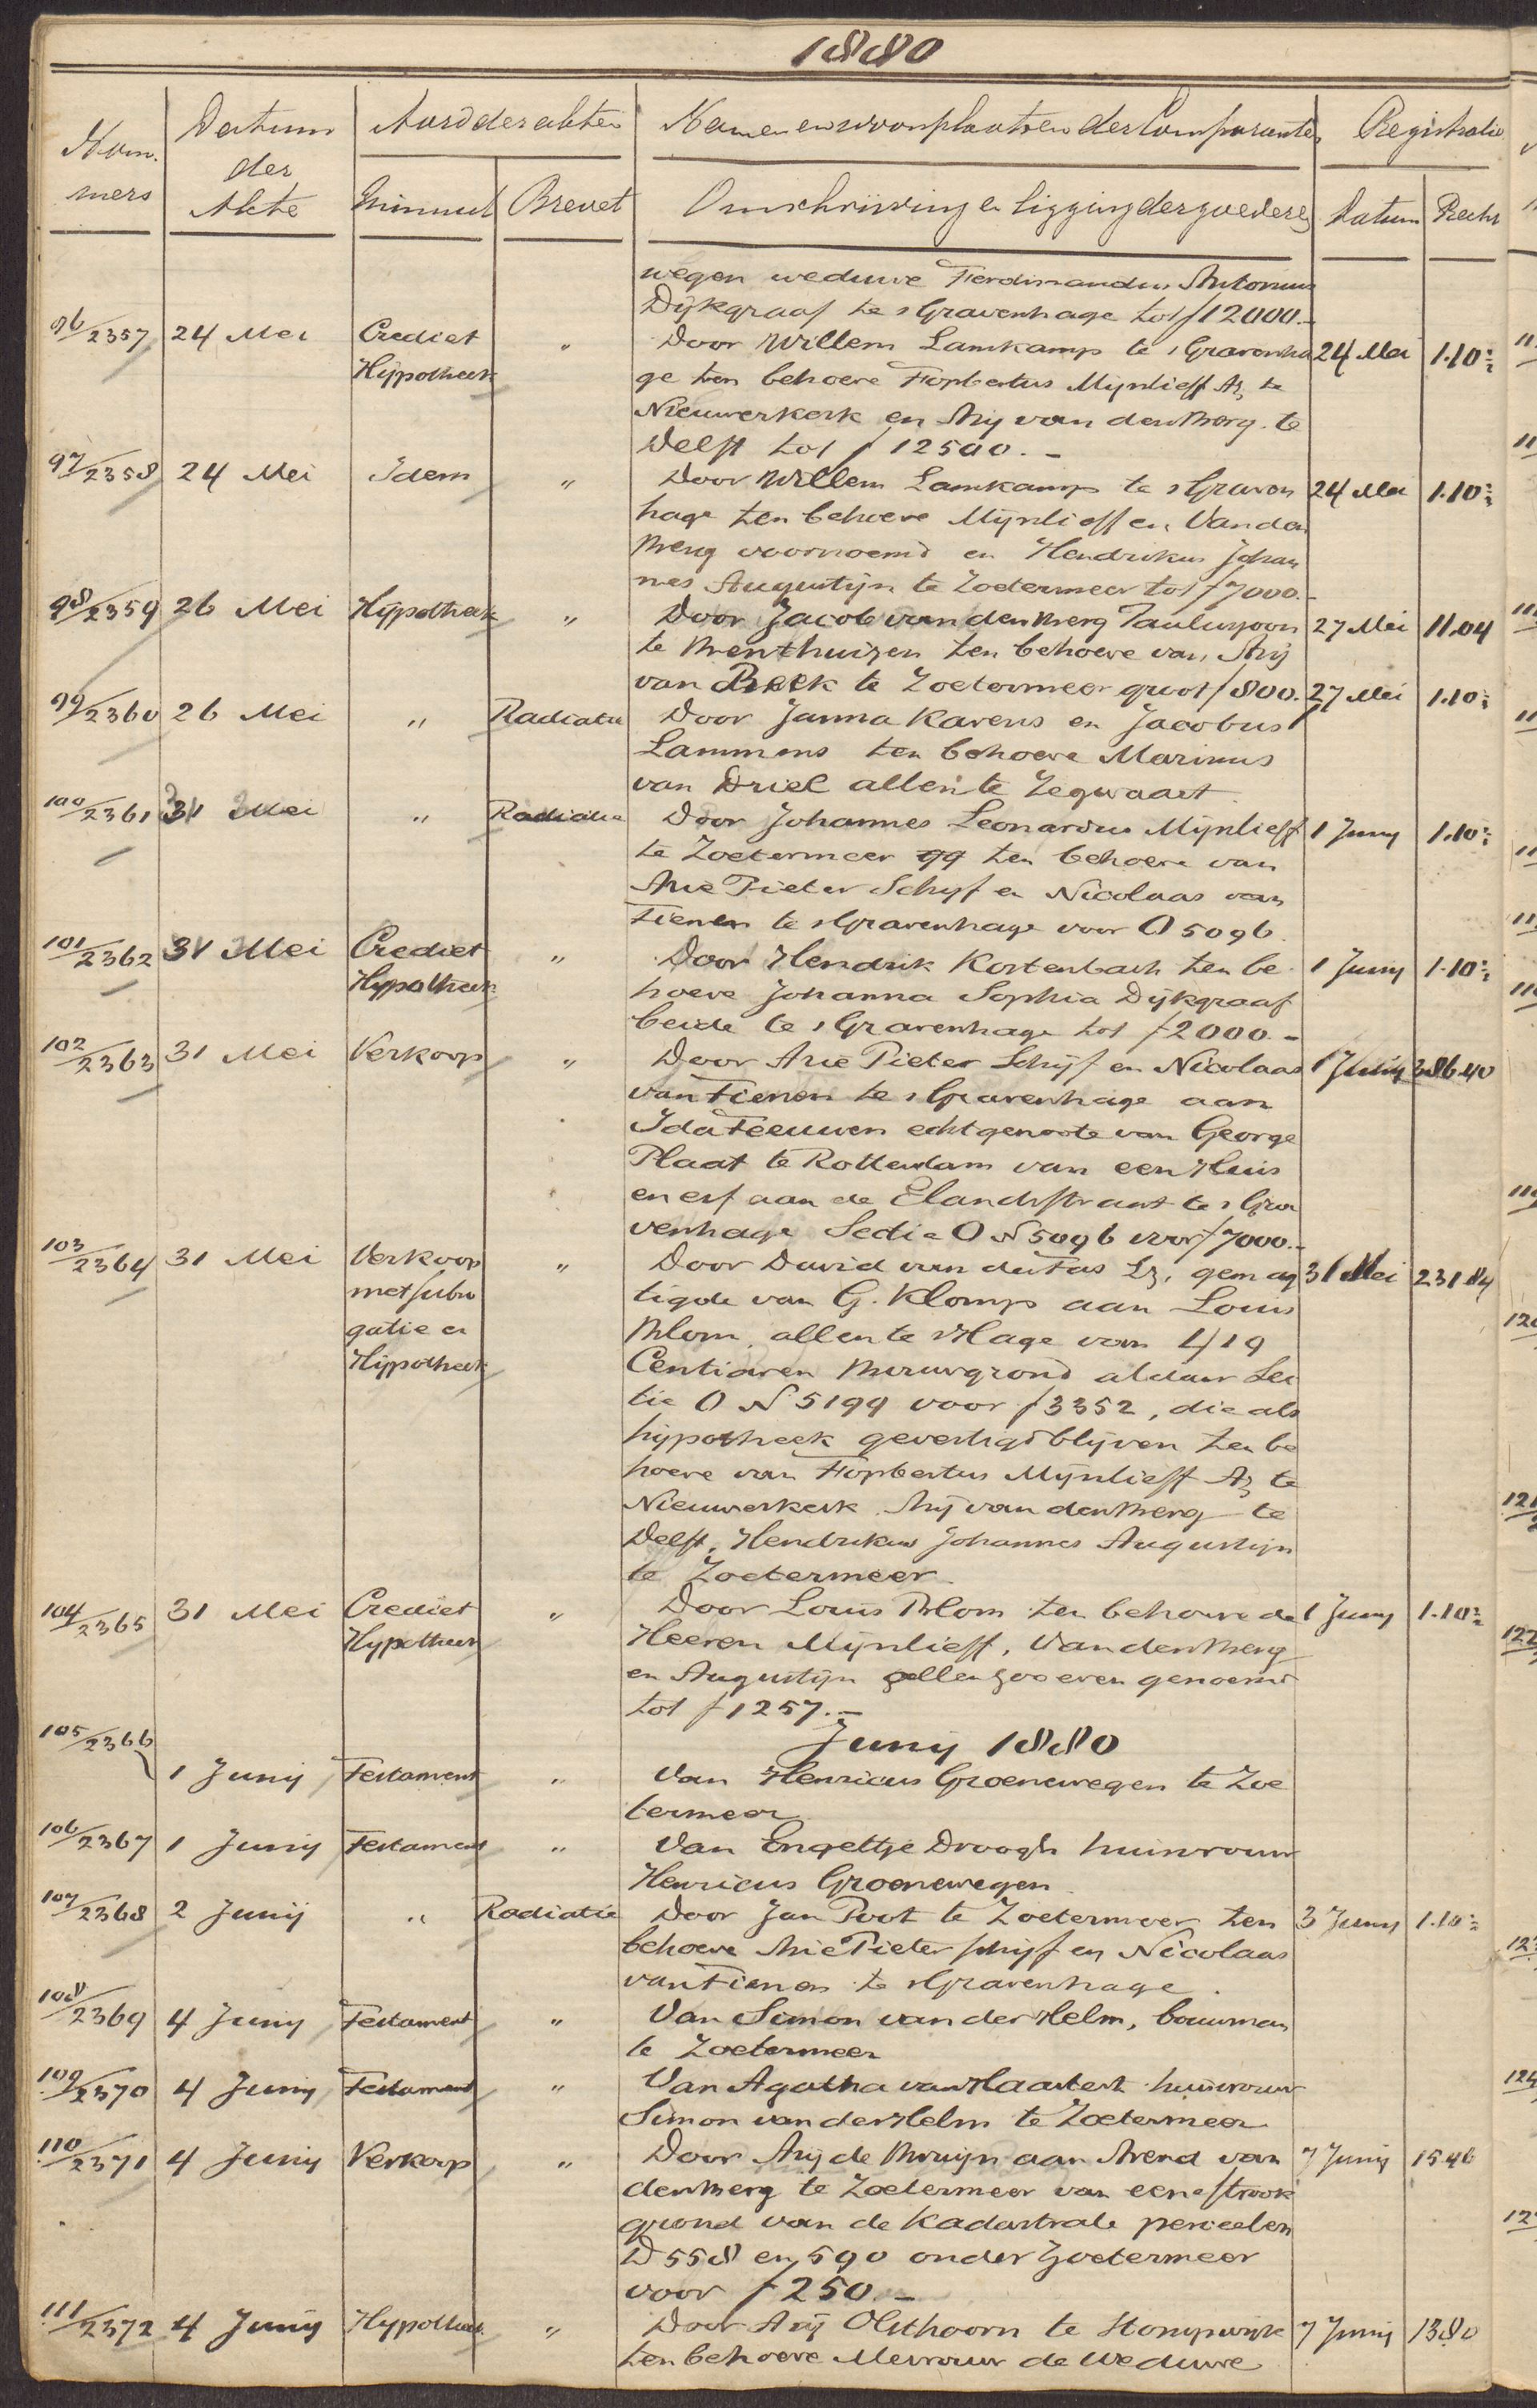 1880
Nom. Datum Aard der akten Namen en woonplaatsen der Comparanten Registratie
mers der
Akte Minuut Brevet Omschrijving en ligging der goederen Datum Recht
wegen weduwe Ferdinandus Antonius
Dijkgraaf te sGravenhage tot f 12000.-
96/2357 24 Mei Crediet " Door Willem Lamkamp te sGravenha 24 Mei 1.10
Hijpotheek ge ten behoeve Fopbertus Mijnlieff Az te
Nieuwerkerk en Arij van den Berg te
Delft tot f 12500.-
97/2358 24 Mei Idem " Door Willem Lamkamp te sGraven 24 Mei 1.10
hage ten behoeve Mijnlieff en Van den
Berg voornoemd en Hendrikus Johan
nes Augustijn te Zoetermeer tot f 7000.-
98/2359 26 Mei Hijpotheek " Door Jacob van den Berg Pauluszoon 27 Mei 11.04
te Benthuizen ten behoeve van Arij
van Beek te Zoetermeer groot f 800.
99/2360 26 Mei " Radiatie Door Janna Karens en Jacobus 27 Mei 1.10
Lammens ten behoeve Marinus
van Driel allen te Zegwaart
100/2361 31 Mei " Radiatie Door Johannes Leonardus Mijnlieff 1 Junij 1.10
te Zoetermeer qq ten behoeve van
Arie Pieter Schijf en Nicolaas van
Tienen te sGravenhage voor O 5096.
101/2362 31 Mei Crediet " Door Hendrik Kortenbach ten be 1 Junij 1.10
Hypotheek hoeve Johanna Sophia Dijkgraaf
beide te sGravenhage tot f 2000.-
102/2363 31 Mei Verkoop " Door Arie Pieter Schijf en Nicolaas 1 Junij 386.40
van Tienen te sGravenhage aan
Ida Teeuwen echtgenoote van George
Plaat te Rotterdam van een Huis
en erf aan de Elandstraat te sGra
venhage Sectie O N 5096 voor f 7000.-
103/2364 31 Mei Verkoop " Door David van der Tas Lz, gemag 31 Mei 231.84
met subro tigde van G. Klomp aan Louis
gatie en Blom, allen te sHage van 419
Hijpotheek Centiaren Bouwgrond aldaar Sec
tie O N 5199 voor f 3352, die als
hypotheek gevestigd blijven ten be
hoeve van Fopbertus Mijnlieff Az te
Nieuwerkerk Arij van den Berg te
Delft, Hendrikus Johannes Augustijn
te Zoetermeer
104/2365 31 Mei Crediet " Door Louis Blom ten behoeve de 1 Junij 1.10
Hypotheek Heeren Mijnlieff, Van den Berg
en Augustijn allen zoo even genoemd
tot f 1257.-
105/2366 Junij 1880
1 Junij Testament " Van Henricus Groenewegen te Zoe
termeer
106/2367 1 Junij Testament " Van Engeltje Droogh huisvrouw
Henricus Groenewegen
107/2368 2 Junij " Radiatie Door Jan Poot te Zoetermeer ten 3 Junij 1.10
behoeve Arie Pieter Schijf en Nicolaas
van Tienen te sGravenhage.
108/2369 4 Junij Testament " Van Simon van der Helm, bouwman
te Zoetermeer
109/2370 4 Junij Testament " Van Agatha van Haastert huisvrouw
Simon van der Helm te Zoetermeer
110/2371 4 Junij Verkoop " Door Arij de Bruijn aan Arend van 7 Junij 15.46
den Berg te Zoetermeer van eene strook
grond van de Kadastrale perceelen
D 558 en 590 onder Zoetermeer
voor f 250.-
111/2372 4 Junij Hypotheek " Door Arij Olsthoorn te Stompwijk 7 Junij 13.80
ten behoeve Mevrouw de Weduwe